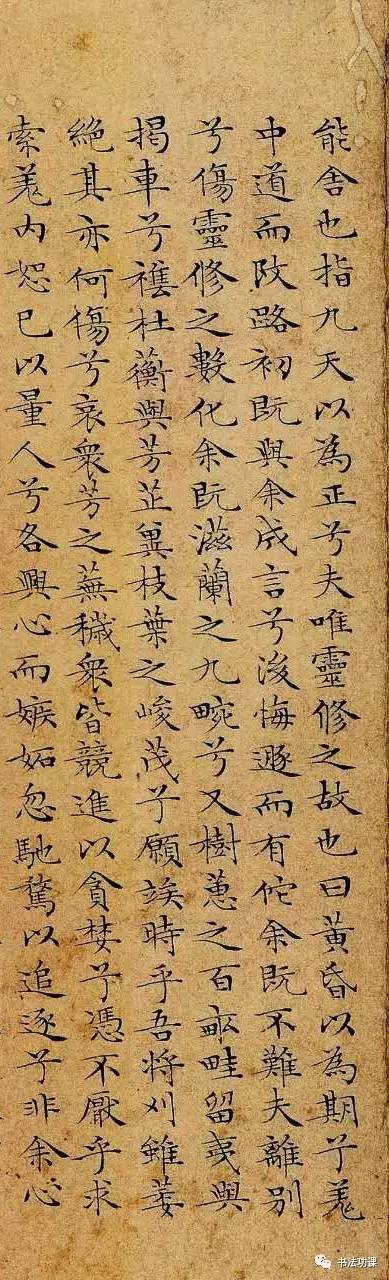 能舍也指九天以為正兮夫唯靈修之故也曰黃昏以為期兮羌
中道而改路初既與余成言兮後悔遯而有佗余既不難夫離別
兮傷靈修之數化余既滋蘭之九畹兮又樹蕙之百畝畦留夷與
揭車兮襍杜蘅與芳芷冀枝葉之峻茂兮願竢時乎吾將刈雖萎
絕其亦何傷兮哀衆芳之蕪穢衆皆競進以貪婪兮憑不厭乎求
索羌内恕己以量人兮各興心而嫉妬忽馳騖以追逐兮非余心
书法功课